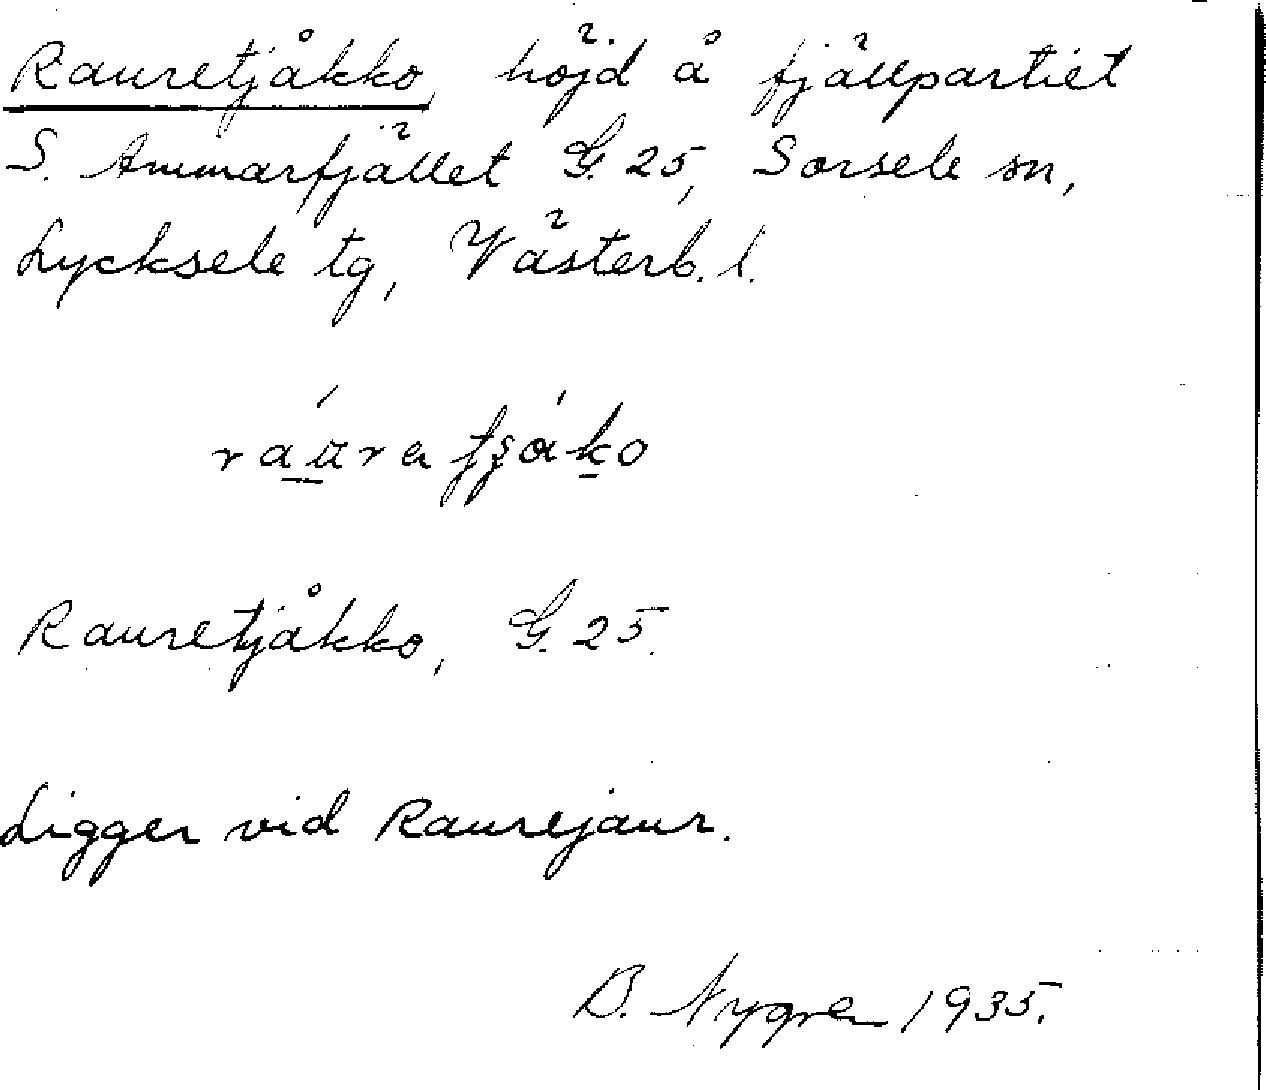 Rauretjåkko, höjd å fjällpartiet
S. Ammarfjället G. 25, Sorsele sn,
Lycksele tg, Västerb. l.
Rauretjåkko, G. 25.
Ligger vid Raurejaur.
B. Nygren 1935.